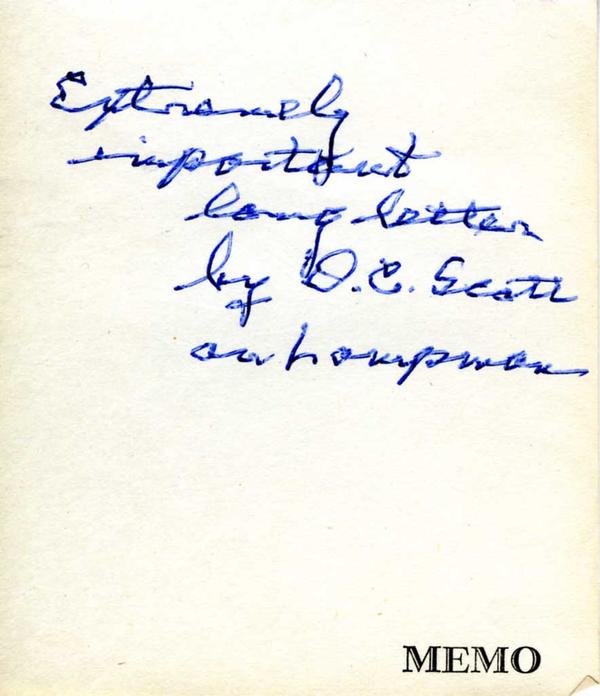 Extremely
important
long letter
by D.C. Scott
on Lampman
MEMO